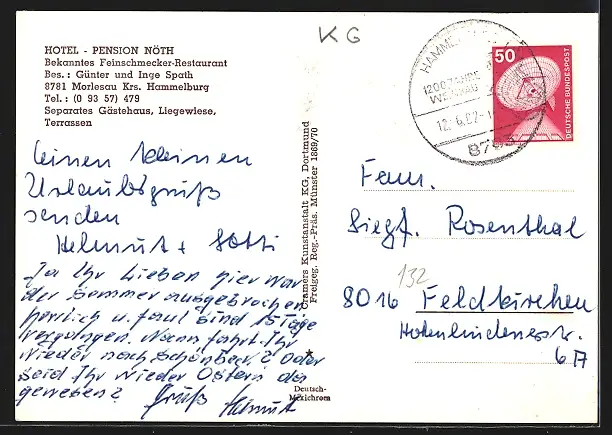 KG
HOTEL - PENSION NÖTH
Bekanntes Feinschmecker-Restaurant
Bes.: Günter und Inge Spath
8781 Morlesau Krs. Hammelburg
Tel.: (0 93 57) 479
Separates Gästehaus, Liegewiese,
Terrassen
einen kleinen
Urlaubsgruß
senden
Helmut +
Ja Ihr Lieben hier war
der Sommer ausgebrochen
herrlich u. faul sind 15 Tage
vergangen. Wann fahrt Ihr
wieder nach Schönber? Oder
seid Ihr wieder Ostern da
gewesen? Gruß Helmut
Cramers Kunstanstalt KG, Dortmund
Freigeg. Reg.-Präs. Münster 1869/70
Deutsch-
Mexichrom
HAMMEL
1200 JAHRE
12.6.82
8783
50
DEUTSCHE BUNDESPOST
Fam.
Siegf. Rosenthal
132
8016 Feldkirchen
Hohenlindenerstr.
67